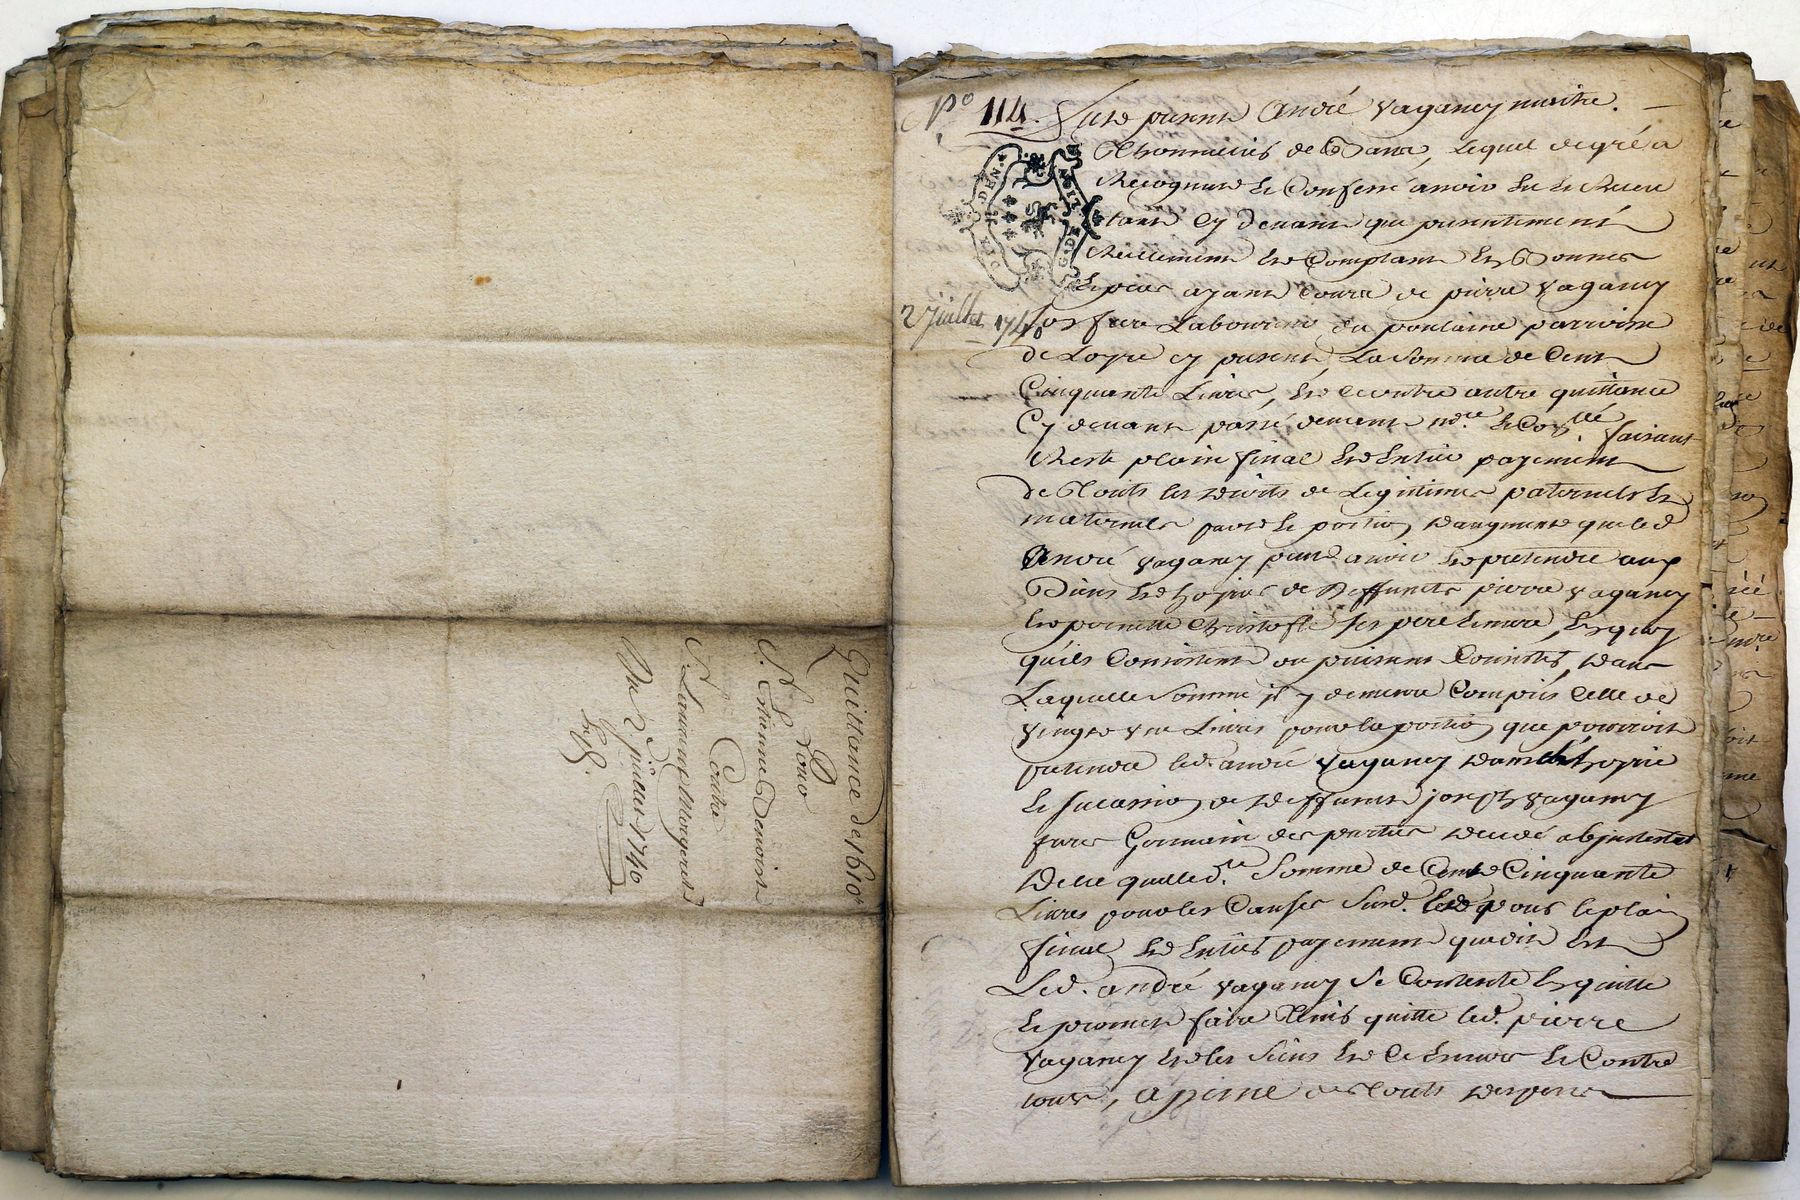 Quittance de 161ᵒˡ
Pour
Sʳ Estienne Benoist
Contre
Sʳ Laurent Morgeret
Du 2 juillet 1740
No 114.
2 juillet 1740
GEN. DE LION
DEN.
Fut présent André Vaganey maitre
Thonnelier de, Lequel de gré a
Recognu et Confessé avoir eu et Receu
tant cy devant que presentement
Reellement et Comptant en Bonnes
Especes ayant Cours de pierre Vaganey
son frere Laboureur du parroisse
de Loyre cy present, La Somme de Cent
Cinquante Livres, et ce outre autre quittance
Cy devant passé devant nore. et Coʳˡᵉᵍᵘé faisant
Reste plain final et Entier payement
de Touts les droits de Legitimes paternels et
maternels part et portion daugment que led
André Vaganey peut avoir et pretendre aux
Biens et hoyries de Deffuncts pierre Vaganey
et pernette Christofle ses pere et mere, En quoy
qu'ils Consistent ou puissent Consister, dans
Laquelle Somme il y demeure Compris Celle de
Vingt une Livres pour la portion que pourroit
pretendre led. andré Vaganey dans hoyrie
et succession de deffunt joseph Vaganey
frere Germain des parties decedé abjntestat
De la quelle de. Somme de Cent Cinquante
Livres pour les Causes Susd. et pour le plain
final et Entier payement que dit Est
Led. andré Vaganey Se Contente En quitte
et promet faire Tenir quitte led. pierre
Vaganey et les Siens et Envers et Contre
touts, a peine de Touts despens